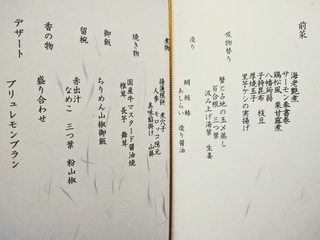 前菜
海老艶煮
サーモン奉書巻
鶏松風 栗甘露煮
八幡絢蒟
子持昆布 枝豆
厚焼玉子
里芋ケシの実揚げ
吸物替り
蟹と占地の玉〆蒸し
百合根 三つ葉
汲み上げ湯葉 生姜
造り
鯛 鮪 鰆
あしらい 造り醤油
煮物
揚蓬根餅 煮穴子
人参 モロッコ隠元
美味餡掛け 山葵
焼き物
国産牛マスタード醤油焼
椎茸 長芋 舞茸
御飯
ちりめん山椒御飯
留椀
赤出汁
なめこ 三つ葉 粉山椒
香の物
盛り合わせ
デザート
ブリュレモンブラン